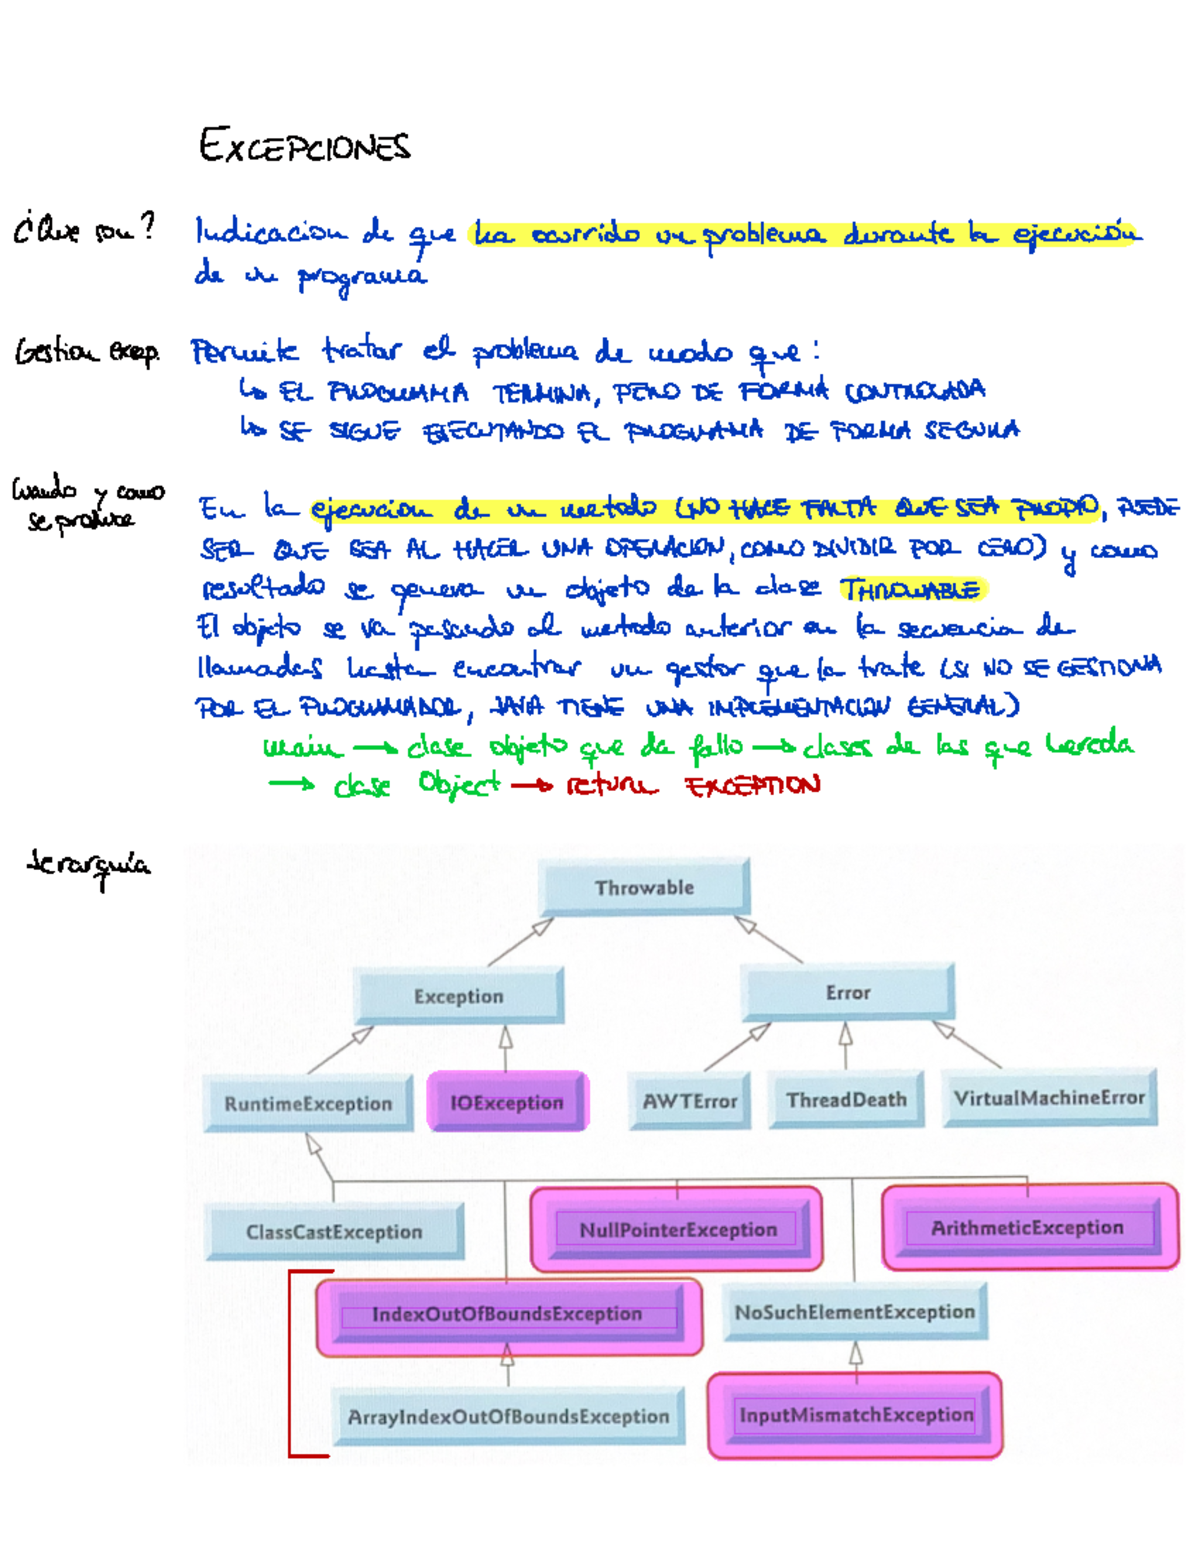 EXCEPCIONES
¿Que son? Indicacion de que ha ocurrido un problema durante la ejecución
de un programa
Gestion excep. Permite tratar el problema de modo que:
↳ EL PROGRAMA TERMINA, PERO DE FORMA CONTROLADA
↳ SE SIGUE EJECUTANDO EL PROGRAMA DE FORMA SEGURA
Cuando y como
se produce
En la ejecucion de un metodo (NO HACE FALTA QUE SEA PROPIO, PUEDE
SER QUE SEA AL HACER UNA OPERACION, COMO DIVIDIR POR CERO) y como
resultado se genera un objeto de la clase THROWABLE
El objeto se va pasando al metodo anterior en la secuencia de
llamadas hasta encontrar un gestor que la trate (SI NO SE GESTIONA
POR EL PROGRAMADOR, JAVA TIENE UNA IMPLEMENTACION GENERAL)
main → clase objeto que da fallo → clases de las que hereda
→ clase Object → return EXCEPTION
Jerarquía
Throwable
Exception Error
RuntimeException IOException AWTError ThreadDeath VirtualMachineError
ClassCastException NullPointerException ArithmeticException
IndexOutOfBoundsException NoSuchElementException
ArrayIndexOutOfBoundsException InputMismatchException